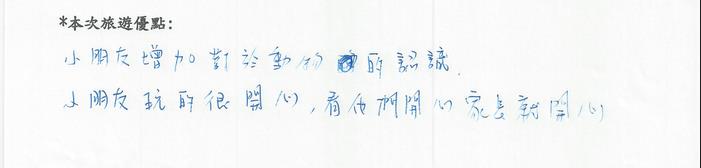 *本次旅遊優點:
小朋友增加對於動物的認識.
小朋友玩的很開心,看他們開心家長就開心